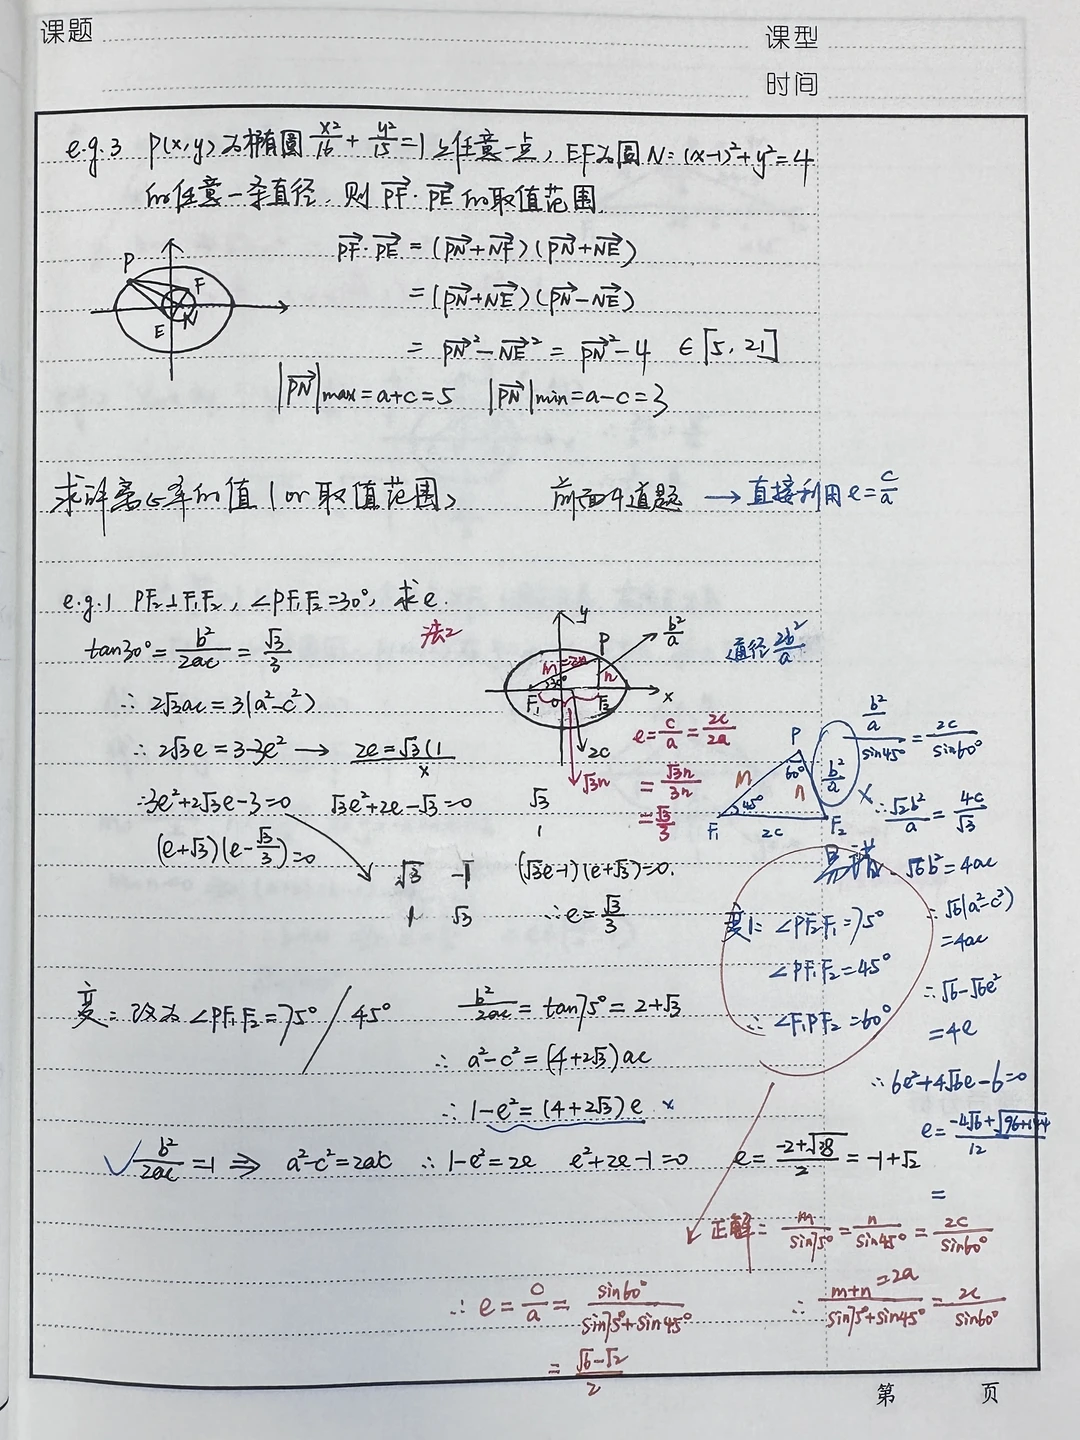 课题
课型
时间
e.g.3 P(x,y)为椭圆 x²/16 + y²/15 = 1 上任意一点, EF为圆N: (x-1)²+y²=4
的任意一条直径, 则 PF·PE 的取值范围.
PF·PE = (PN+NF)(PN+NE)
= (PN+NE)(PN-NE)
= PN²-NE² = PN²-4 ∈[5, 21]
|PN|max=a+c=5 |PN|min=a-c=3
P F E N
求解离心率的值(or取值范围) 前面4道题 → 直接利用 e=c/a
e.g.1 PF₂⊥F₁F₂, ∠PF₁F₂=30°, 求e.
tan30°= b²/2ac = √3/3
法2
∴ 2√3ac=3(a²-c²)
∴ 2√3e=3-3e² → 2e=√3(1
x
∴3e²+2√3e-3=0 √3e²+2e-√3=0 √3
1
(e+√3)(e-√3/3)=0
√3 -1 (√3e-1)(e+√3)=0.
1 √3 ∴e=√3/3
y P b²/a
m=2n n 30°
F₁ 0 F₂ x
2c
√3n
通径 2b²/a
e=c/a=2c/2a
=√3n/3n
=√3/3
P 60° m n b²/a
F₁ 45° 2c F₂
x
b²/a / sin45° = 2c/sin60°
∴ √2b²/a = 4c/√3
易错 √6b²=4ac
∴ √6(a²-c²)
=4ac
∴ √6-√6e²
=4e
∴ 6e²+4√6e-6=0
e= -4√6+√96+144 / 12
=
变1: ∠PF₂F₁=75°
∠PF₁F₂=45°
∴ ∠F₁PF₂=60°
变: 改为∠PF₁F₂=75° / 45° b²/2ac = tan75°=2+√3
∴ a²-c²=(4+2√3)ac
∴ 1-e²=(4+2√3)e x
√ b²/2ac=1 ⇒ a²-c²=2ac ∴ 1-e²=2e e²+2e-1=0 e= -2+√8 / 2 = -1+√2
正解: m/sin75° = n/sin45° = 2c/sin60°
∴ m+n=2a / sin75°+sin45° = 2c/sin60°
∴ e= c/a = sin60° / sin75°+sin45°
= √6-√2 / 2
第 页